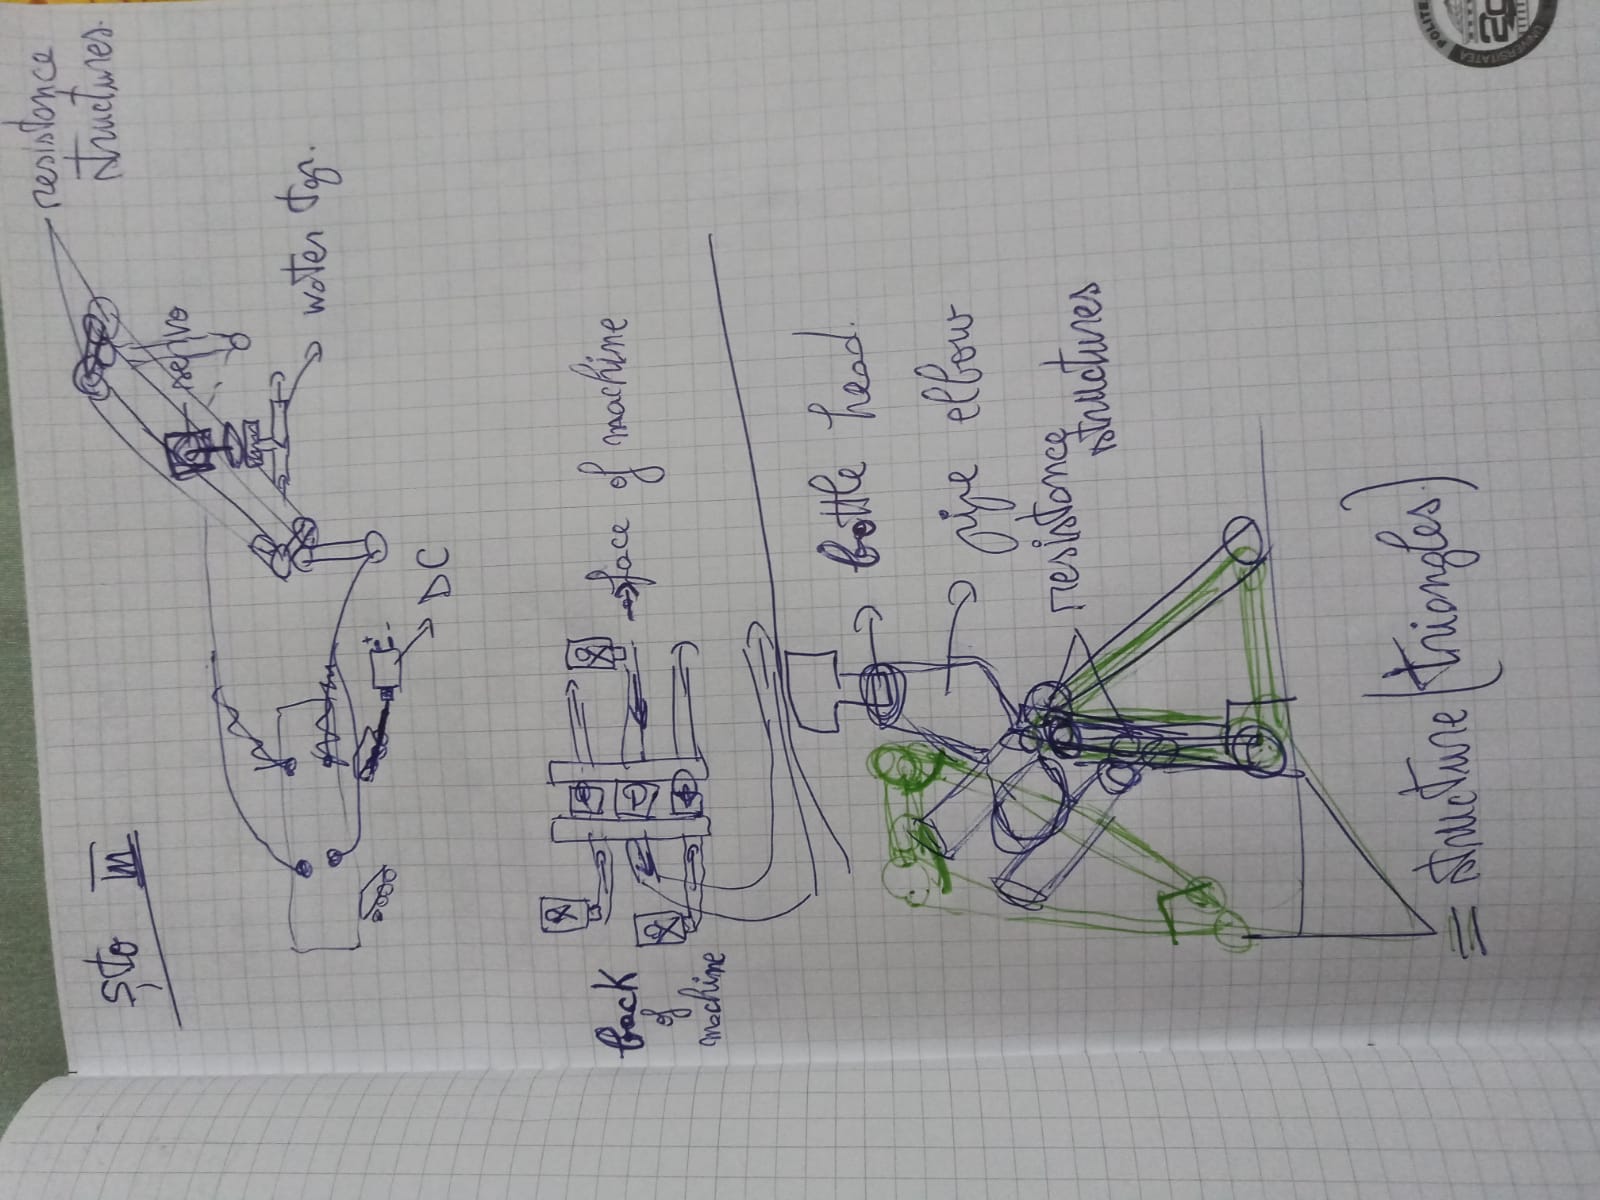 Sto III
resistance
structures.
servo
water tap.
+
-
DC
back
of
machine
face of machine
bottle head.
pipe elbow
resistance
structures
= structure (triangles)
POLITE
UNIVERSITATEA